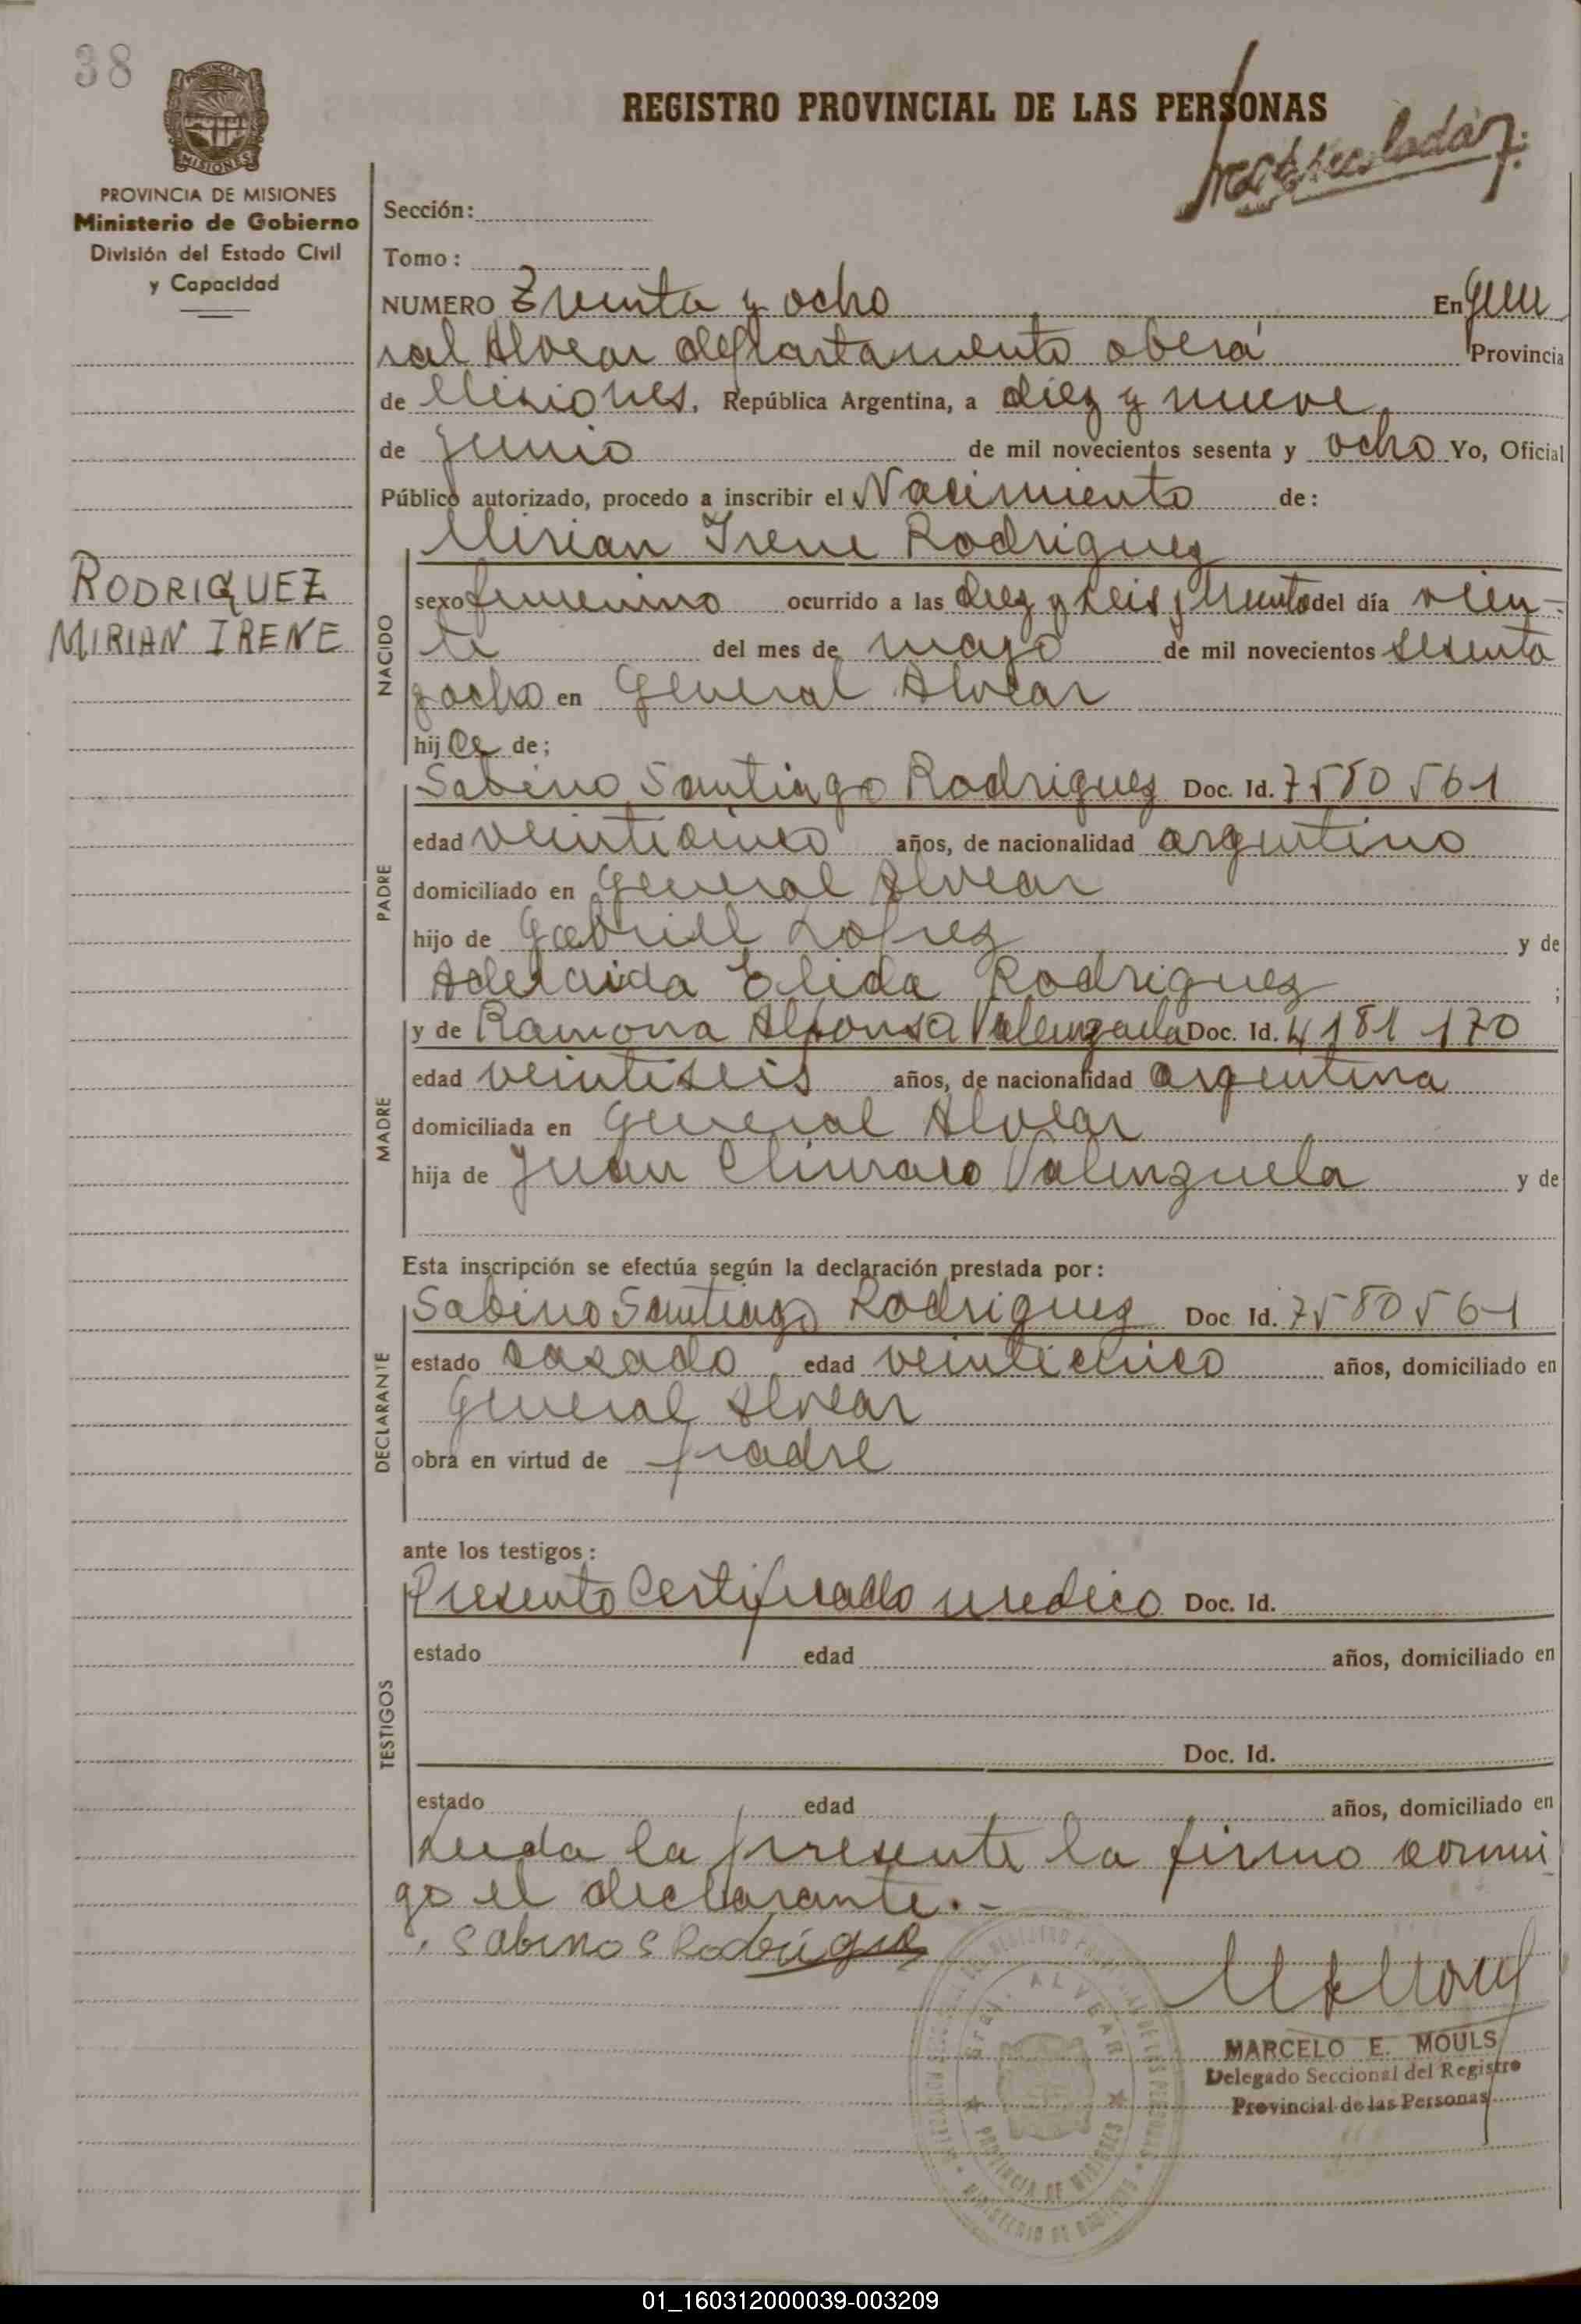 38
PROVINCIA DE
MISIONES
PROVINCIA DE MISIONES
Ministerio de Gobierno
División del Estado Civil
y Capacidad
REGISTRO PROVINCIAL DE LAS PERSONAS
Sección:
Tomo:
NUMERO Treinta y ocho En Gene
ral Alvear departamento oberá Provincia
de Misiones, República Argentina, a diez y nueve
de junio de mil novecientos sesenta y ocho Yo, Oficial
Público autorizado, procedo a inscribir el Nacimiento de:
RODRIGUEZ
MIRIAN IRENE
NACIDO
Mirian Irene Rodriguez
sexo femenino ocurrido a las diez y seis y treinta del día vein-
te del mes de mayo de mil novecientos sesenta
y ocho en General Alvear
hija de;
PADRE
Sabino Santiago Rodriguez Doc. Id. 7580561
edad veinticinco años, de nacionalidad argentino
domiciliado en General Alvear
hijo de Gabriel Lopez y de
Adelaida Elida Rodriguez ;
MADRE
y de Ramona Alfonsa Valenzuela Doc. Id. 4181170
edad veintiseis años, de nacionalidad argentina
domiciliada en General Alvear
hija de Juan Valenzuela y de
Esta inscripción se efectúa según la declaración prestada por:
DECLARANTE
Sabino Santiago Rodriguez Doc Id. 7580561
estado casado edad veinticinco años, domiciliado en
General Alvear
obra en virtud de padre
ante los testigos:
TESTIGOS
Presento Certificado medico Doc. Id.
estado edad años, domiciliado en
Doc. Id.
estado edad años, domiciliado en
Leida la presente la firma conmi
go el declarante.-
Sabino S Rodrigue
Gral. ALVEAR
PROVINCIA DE MISIONES
MINISTERIO DE GOBIERNO
MARCELO E. MOULS
Delegado Seccional del Registro
Provincial de las Personas
01_160312000039-003209